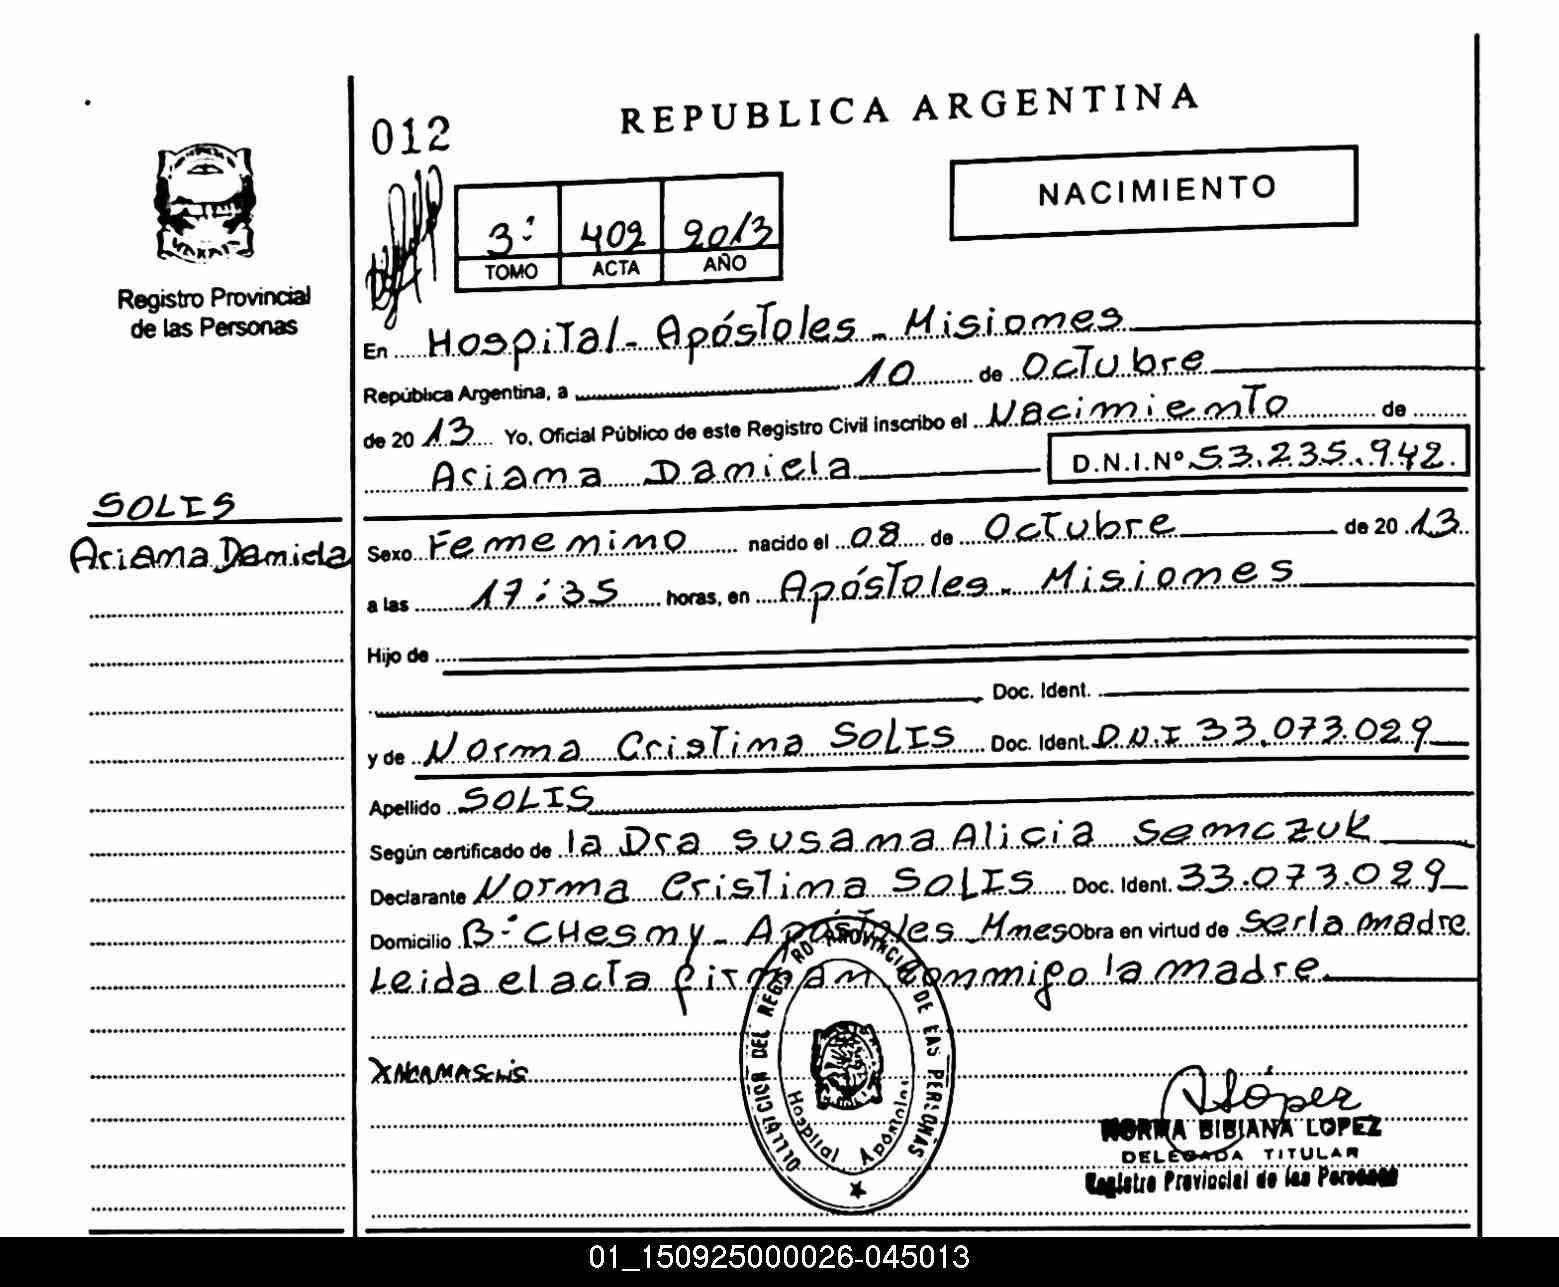 REPUBLICA ARGENTINA
012
NACIMIENTO
3º 402 2013
TOMO ACTA AÑO
Registro Provincial
de las Personas
En Hospital - Apóstoles - Misiones
República Argentina, a 10 de Octubre
de 2013 Yo, Oficial Público de este Registro Civil inscribo el Nacimiento de
Ariana Daniela D.N.I.Nº 53.235.942.
SOLIS
Ariana Daniela
Sexo Femenino nacido el 08 de Octubre de 2013
a las 17:35 horas, en Apóstoles - Misiones
Hijo de
Doc. Ident.
y de Norma Cristina SOLIS Doc. Ident. D.N.I 33.073.029
Apellido SOLIS
Según certificado de la Dra Susana Alicia Semczuk
Declarante Norma Cristina SOLIS Doc. Ident. 33.073.029
Domicilio Bº CHesny - Apóstoles Mnes Obra en virtud de Ser la madre
Leida el acta firman conmigo la madre
X NORMA SOLIS
DEL REGISTRO PROVINCIAL DE LAS PERSONAS
Hospital Apóstoles
López
NORMA BIBIANA LOPEZ
DELEGADA TITULAR
Registro Provincial de las Personas
01_150925000026-045013